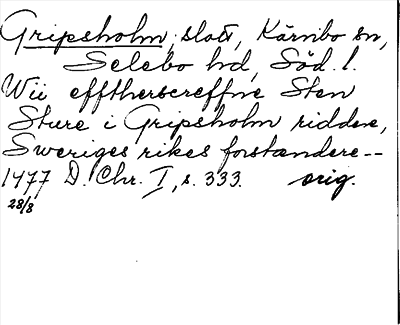 Gripsholm, slott, Kärnbo sn,
Selebo hd, Söd. l.
Wii efftherscreffne Sten
Sture i Gripsholm riddere,
Sweriges rikes forstandere--
1477 D. Chr. I, s. 333. orig.
28/8